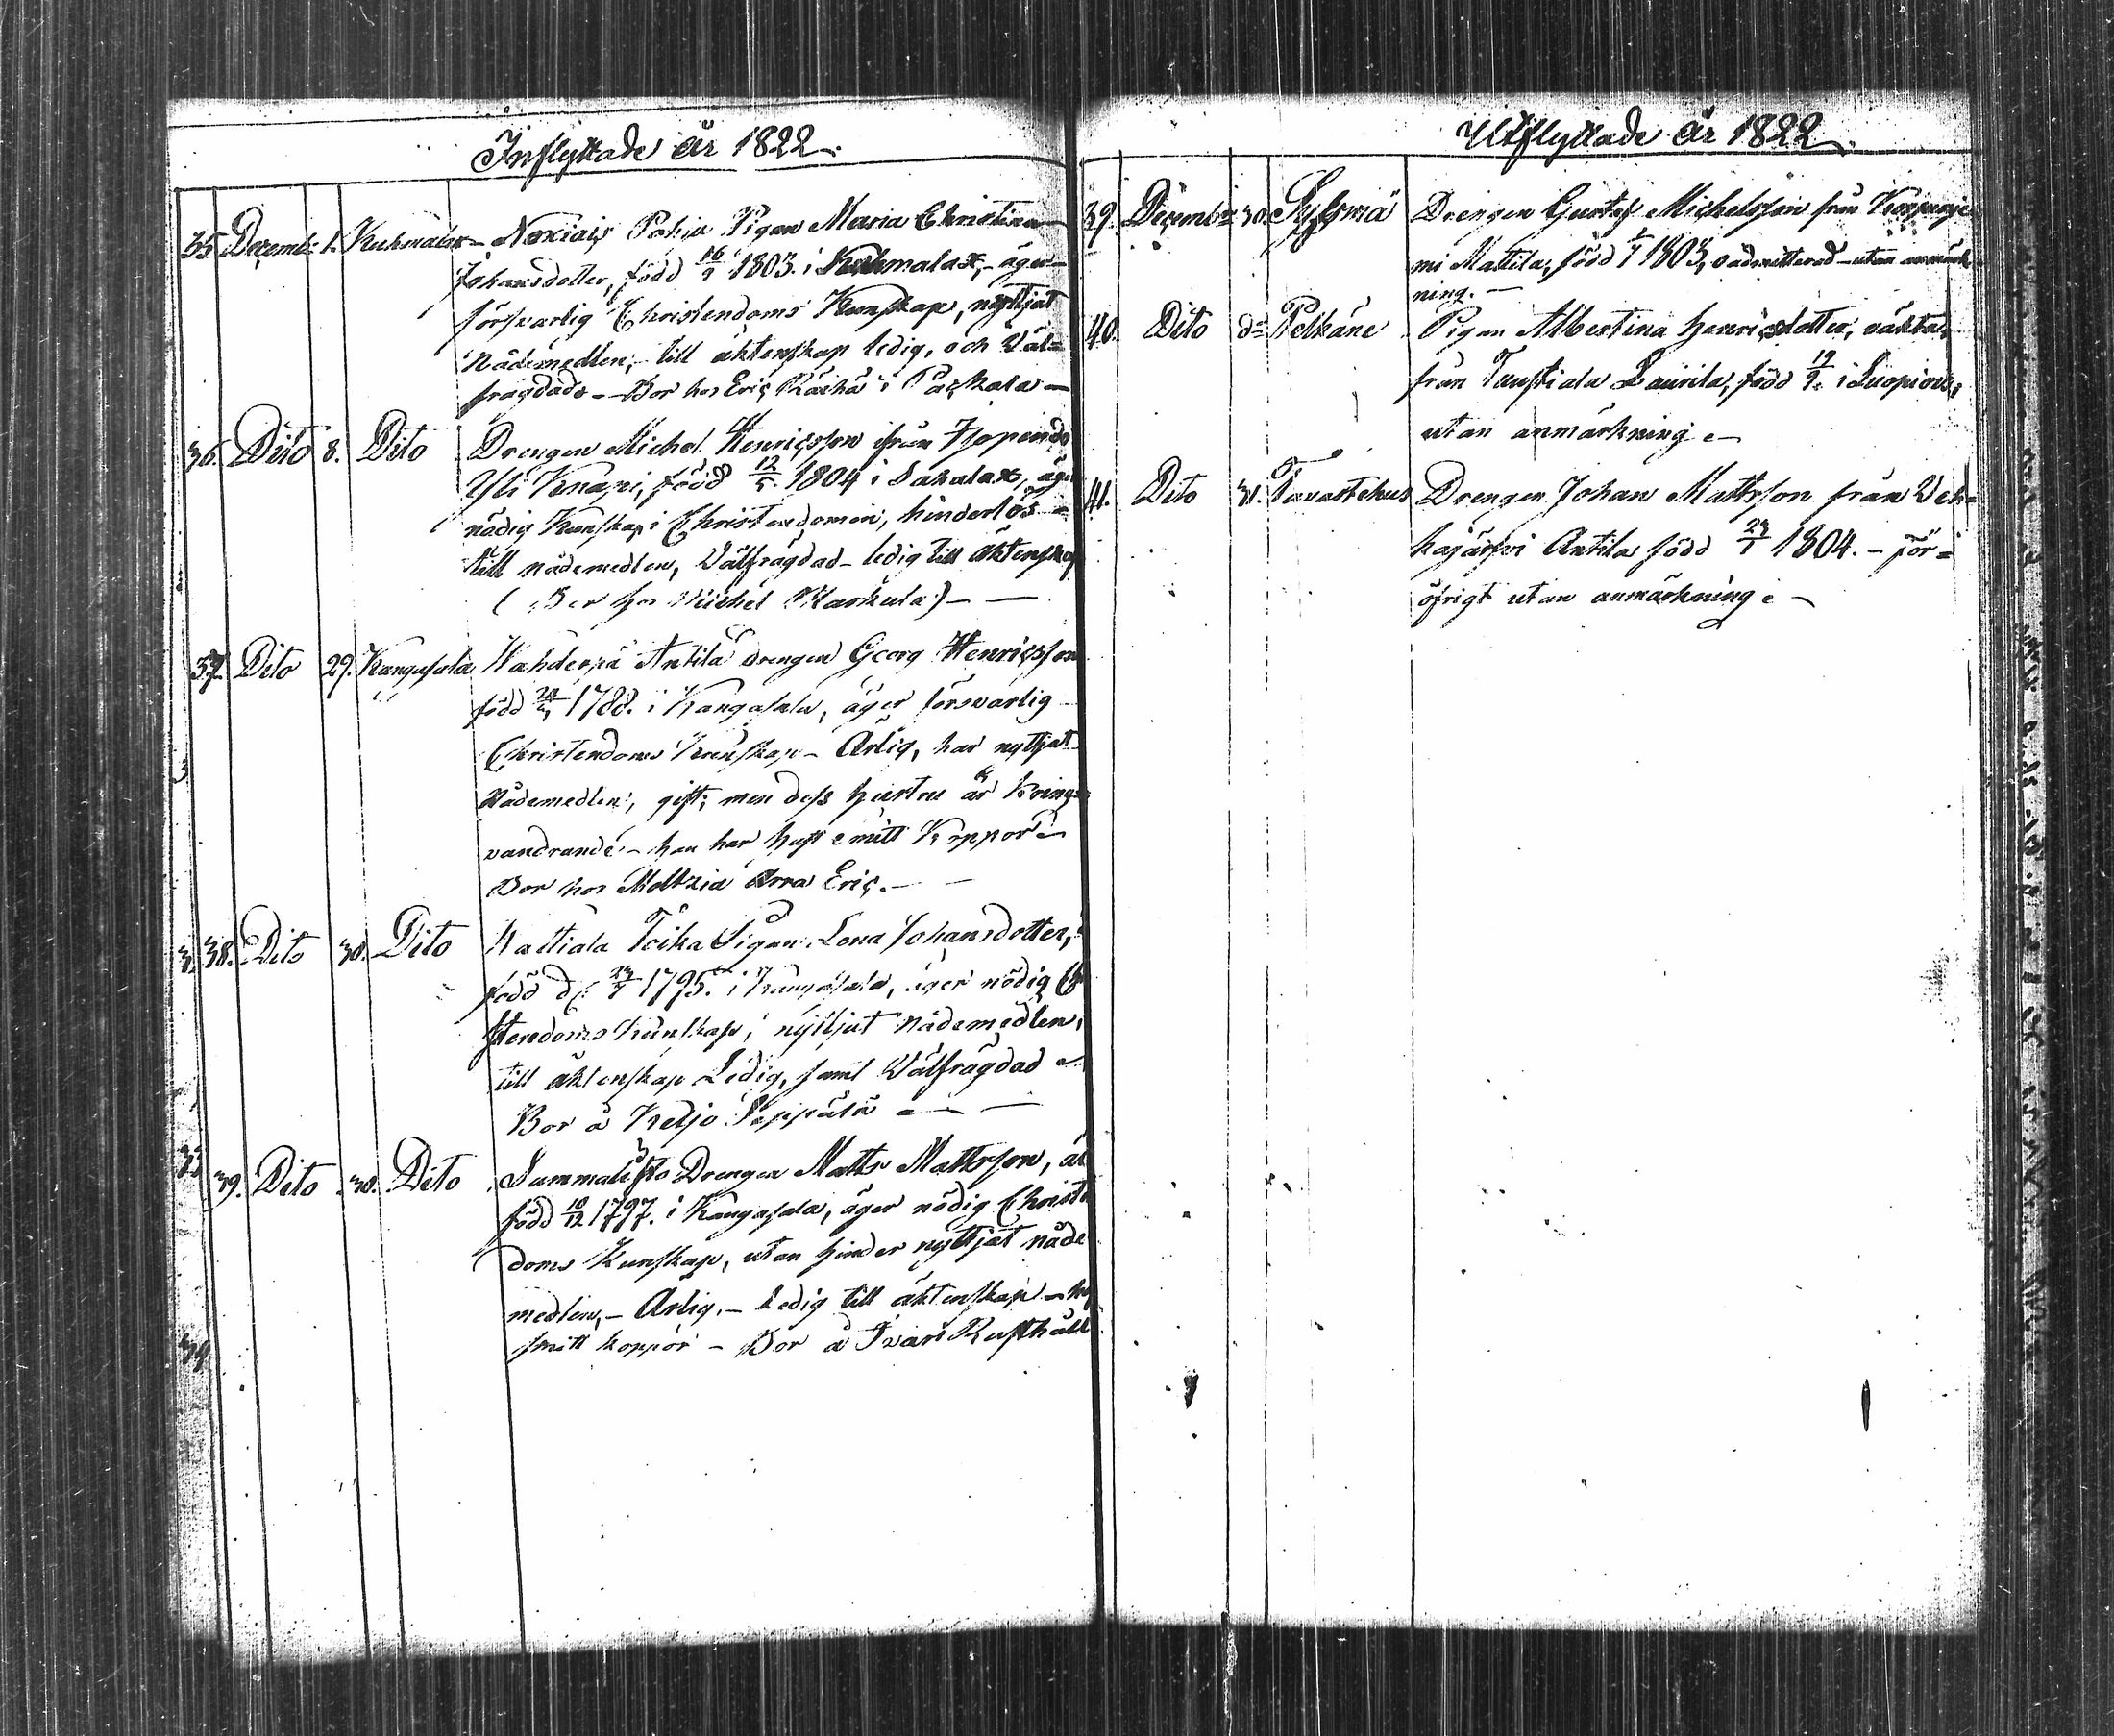 Inflyttade år 1822.
35. Decemb: 1. Kuhmalax – Noxiais Pohja Pigan Maria Christina
Johansdotter, född 16/9 1803. i Kuhmalax, – äger
försvarlig Christendoms Kunskap, nyttjat
Nådemedlen; till äktenskap ledig, och Väl=
fragdad. – Bor hos Eric Rächä i Päckala –
36. Dito 8. Dito Drengen Michel Henricsson ifrån
Yli Knapi, född 12/5 1804 i Sahalax, äger
nödig Kunskap i Christendomen, hinderlös
till nådemedlen, Välfrägdad – ledig till äktenskap
(Bor hos Michel Markula) –
37. Dito 29. Kangasala Antila drengen Georg Henricsson
född 1788. i Kangasala, äger försvarlig
Christendoms Kunskap – Ärlig, har nyttjat
Nådemedlen, gift; men dess hustru är kring=
vandrande – han har haft Koppor –
Bor hos Moltzia Arra Eric. –
38. Dito 30. Dito Toika Pigan Lena Johansdotter,
född d: 1795. i Kangasala, äger nödig Chri
stendoms Kunskap, nyttjat Nådemedlen,
till äktenskap Ledig, samt Välfrägdad –
Bor å Keljo Seppälä –
39. Dito 30. Dito Drengen Matts Mattsson, är
född 10/12 1797. i Kangasala, äger nödig Christen
doms Kunskap, utan hinder nyttjat nåde
medlen, – Ärlig. – Ledig till äktenskap –
koppor – Bor å Rusthåll
Utflyttade år 1822.
39. Decembr 30. Sysmä Drengen Gustaf Michelsson från
mi Mattila, född 1803, oadmitterad – utan anmärk
ning. –
40. Dito do Pelkäne Pigan Albertina Henricsdotter,
från Taustiala Laurila, född 19/9. i Luopiois,
utan anmärkning –
41. Dito 31. Tavastehus Drengen Johan Mattsson från Veh=
kajärfvi Antila född 1804. – För=
öfrigt utan anmärkning –